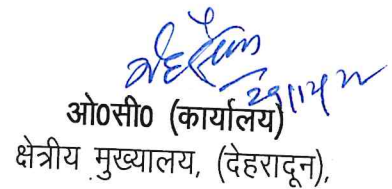 29/12/22
ओ0सी0 (कार्यालय)
क्षेत्रीय मुख्यालय, (देहरादून),